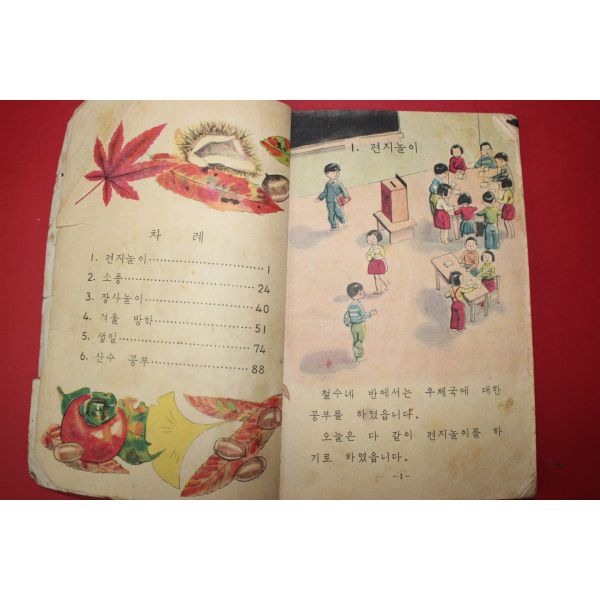 차 례
1. 편지놀이……………………1
2. 소풍……………………24
3. 장사놀이……………………40
4. 겨울 방학……………………51
5. 생일……………………74
6. 산수 공부……………………88
1. 편지놀이
철수네 반에서는 우체국에 대한
공부를 하였읍니다.
오늘은 다 같이 편지놀이를 하
기로 하였읍니다.
-1-